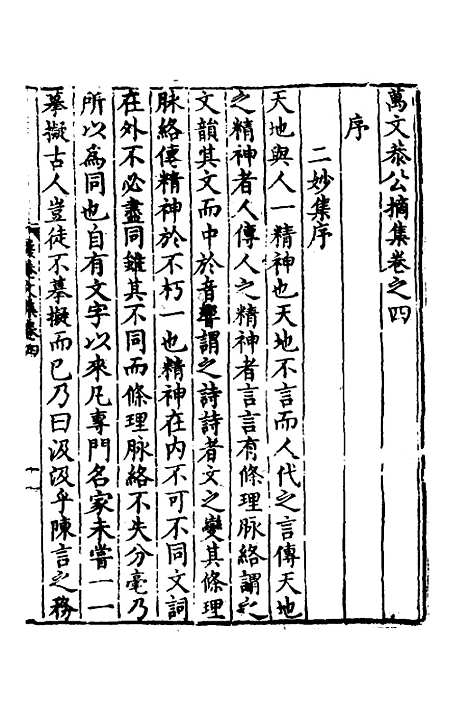 萬文恭公摘集卷之四
序
二妙集序
天地與人一精神也天地不言而人代之言傳天地
之精神者人傳人之精神者言言有條理脉絡謂之
文韻其文而中於音響謂之詩詩者文之變其條理
脉絡傳精神於不朽一也精神在内不可不同文詞
在外不必盡同錐其不同而條理脉絡不失分毫乃
所以為同也自有文字以來凡專門名家未嘗一一
摹擬古人豈徒不摹擬而已乃曰汲汲乎陳言之務